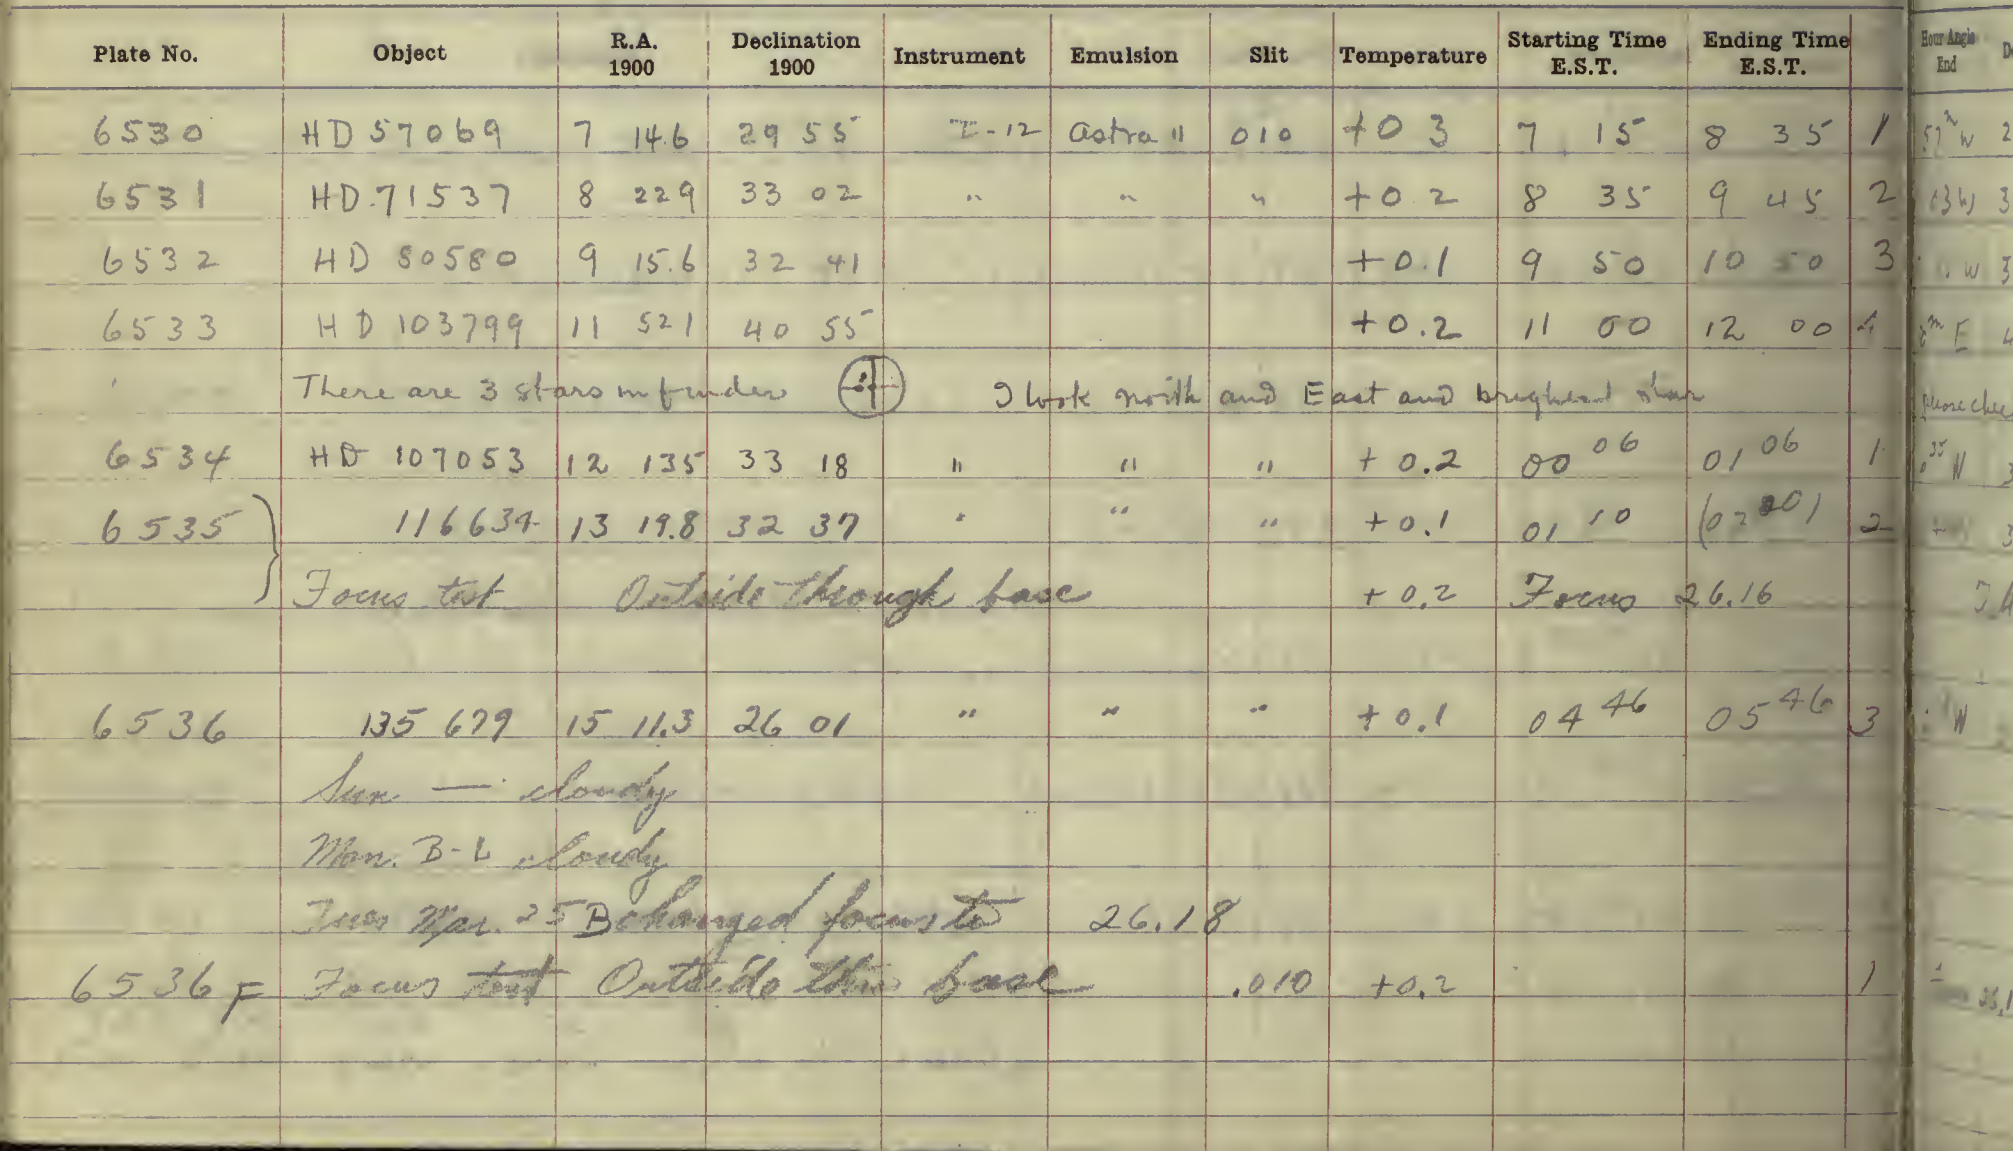 Plate No. Object R.A. 1900 Declination 1900 Instrument Emulsion Slit Temperature Starting Time E.S.T. Ending Time E.S.T. Hour Angle End
6530 HD 57069 7 14.6 29 55 I-12 Astra II 010 +0 3 7 15 8 35 1 W 2
6531 HD 71537 8 229 33 02 " " " +0 2 8 35 9 45 2 W 3
6532 HD 80580 9 15.6 32 41 +0.1 9 50 10 50 3 W 3
6533 HD 103799 11 521 40 55 +0.2 11 00 12 00 4 m E 4
There are 3 stars in finder I took north and East and brightest star please chec
6534 HD 107053 12 135 33 18 " " " +0.2 00 06 01 06 1 35 W 3
6535 116634 13 19.8 32 37 " " " +0.1 01 10 (02 20) 2 3
Focus test Outside through base +0.2 Focus 26.16
6536 135679 15 11.3 26 01 " " " +0.1 04 46 05 46 3 W
Sun — cloudy
Mon. B-L cloudy
Tues Mar. 25 B changed focus to 26.18
6536F Focus test Outside thru base .010 +0.2 1